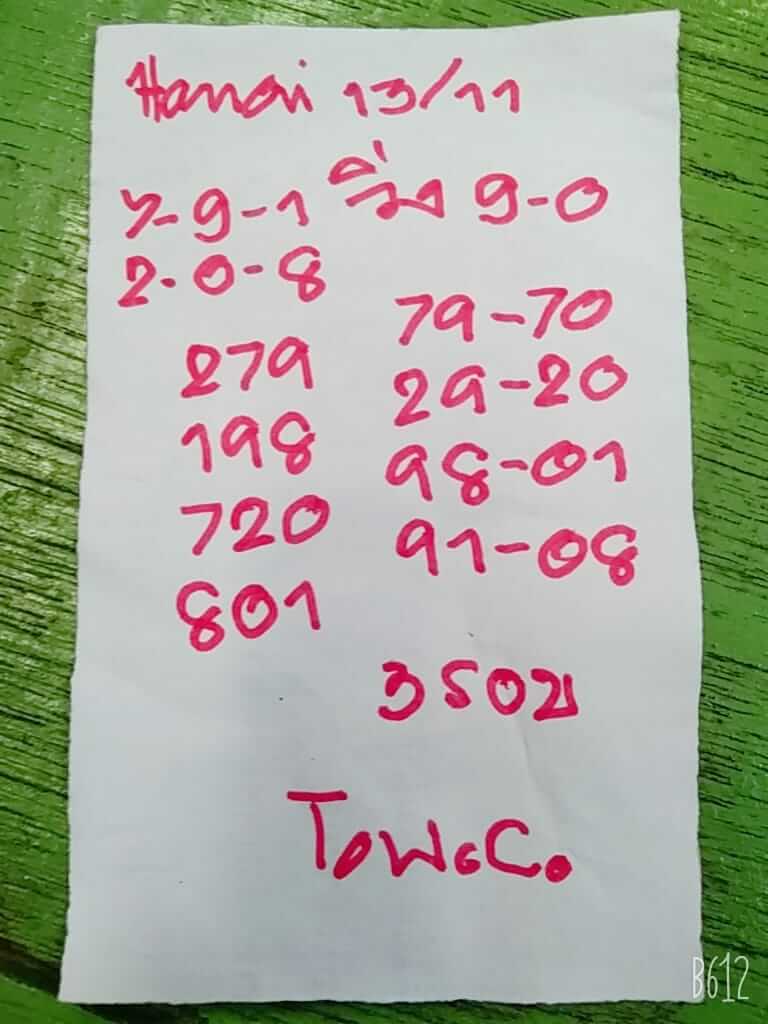 Hanoi 13/11
7-9-1 วิ่ง 9-0
2-0-8
279
198
720
801
79-70
29-20
98-01
91-08
Tow.Co.
B612